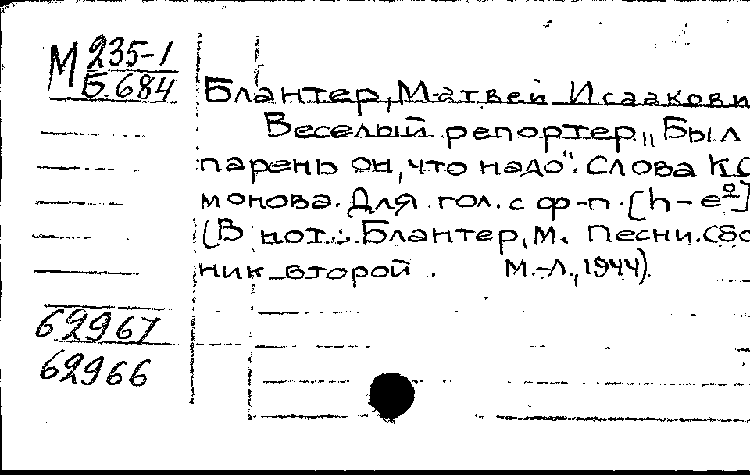 М 235-1
Б 684
Блантер, Матвей Исаакови
Веселый репортер „Был
парень он, что надо". Слова К.С
монова. Для гол. с ф-п. [h-e²]
(В нот.: Блантер, М. Песни. Сбо
ник второй. М.-Л., 1944).
62967
62966